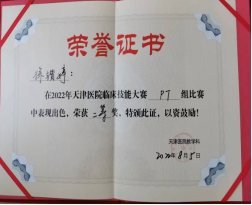 荣誉证书
徐
在2022年天津医院临床技能大赛 PT 组比赛
中表现出色，荣获 二等 奖。特颁此证，以资鼓励！
天津医院教学科
2022年8月5日